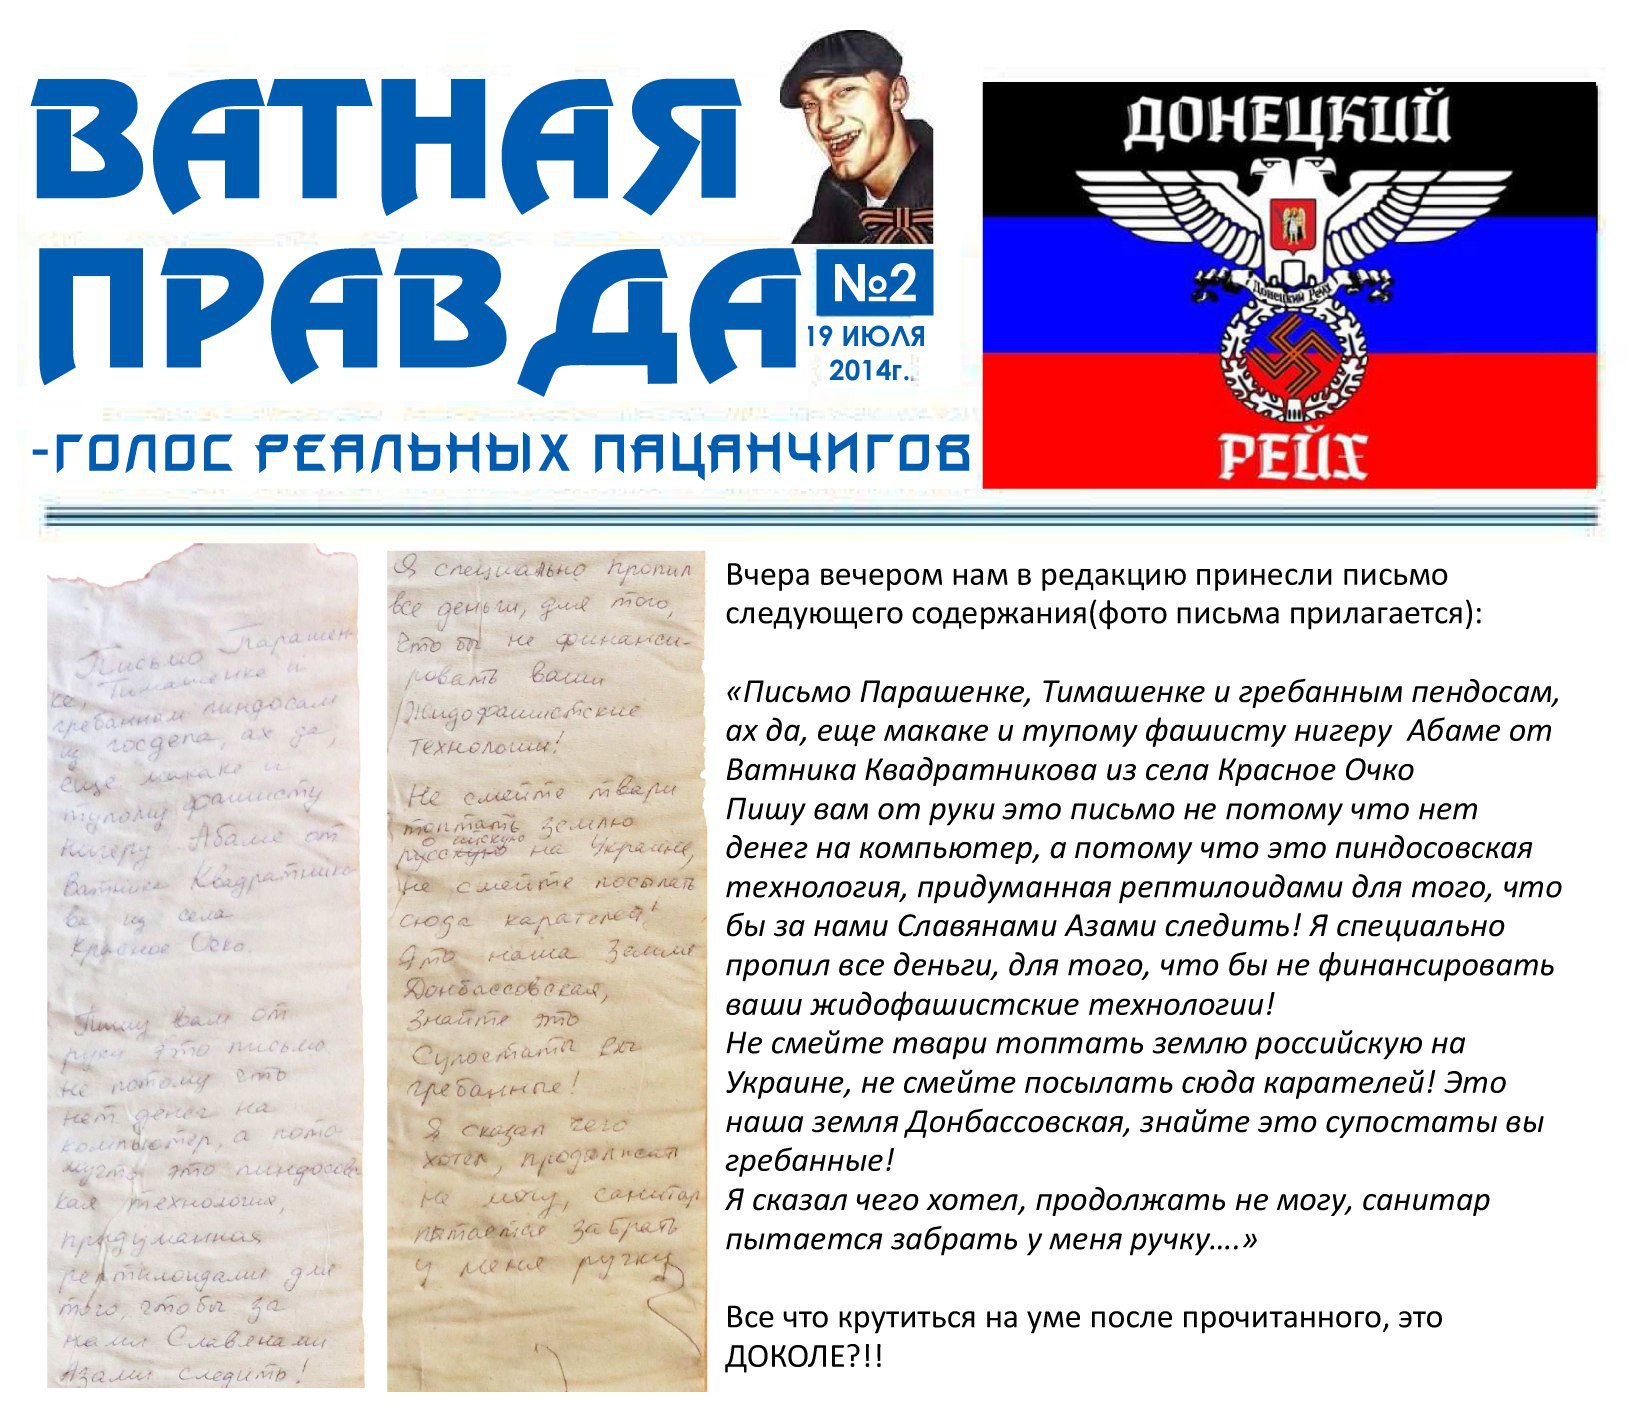 ВАТНАЯ
ПРАВДА
№2
19 ИЮЛЯ
2014г.
-ГОЛОС РЕАЛЬНЫХ ПАЦАНЧИГОВ
ДОНЕЦКИЙ
Донецкий Рейх
РЕЙХ
Письмо Парашен-
ке, Тимашенке и
гребанном пиндосам
из госдепа, ах да,
еще макаке и
тупому фашисту
нигеру Абаме от
Ватника Квадратнико
ва из села
Красное Очко.
Пишу вам от
руки это письмо
не потому что
нет денег на
компьютер, а пото
мучто это пиндосовс
кая технология,
придуманная
рептилоидами для
того, чтобы за
нами Славянами
Азами следить!
Я специально пропил
все деньги, для того,
что бы не финанси-
ровать ваши
Жидофашистские
технологии!
Не смейте твари
топтать землю
русскую на Украине,
не смейте посылать
сюда карателей!
Это наша Земля
Донбассовская,
знайте это
Супостаты вы
гребанные!
Я сказал чего
хотел, продолжать
не могу, санитар
пытается забрать
у меня ручку
Вчера вечером нам в редакцию принесли письмо
следующего содержания(фото письма прилагается):
«Письмо Парашенке, Тимашенке и гребанным пендосам,
ах да, еще макаке и тупому фашисту нигеру Абаме от
Ватника Квадратникова из села Красное Очко
Пишу вам от руки это письмо не потому что нет
денег на компьютер, а потому что это пиндосовская
технология, придуманная рептилоидами для того, что
бы за нами Славянами Азами следить! Я специально
пропил все деньги, для того, что бы не финансировать
ваши жидофашистские технологии!
Не смейте твари топтать землю российскую на
Украине, не смейте посылать сюда карателей! Это
наша земля Донбассовская, знайте это супостаты вы
гребанные!
Я сказал чего хотел, продолжать не могу, санитар
пытается забрать у меня ручку....»
Все что крутиться на уме после прочитанного, это
ДОКОЛЕ?!!